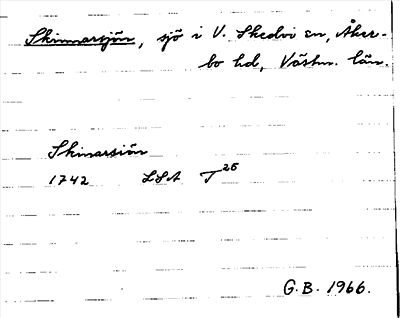 Skinnarsjön, sjö i V. Skedvi sn, Åker-
bo hd, Västm. län.
Skinarsiön
1742 LSA T 26
G.B. 1966.